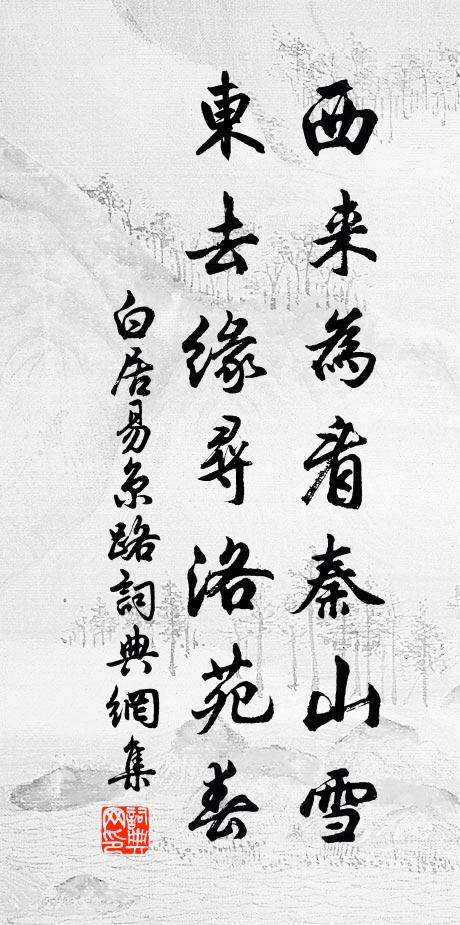 西来為看秦山雪
東去緣尋洛苑春
白居易京路詞典網集
詞典網印